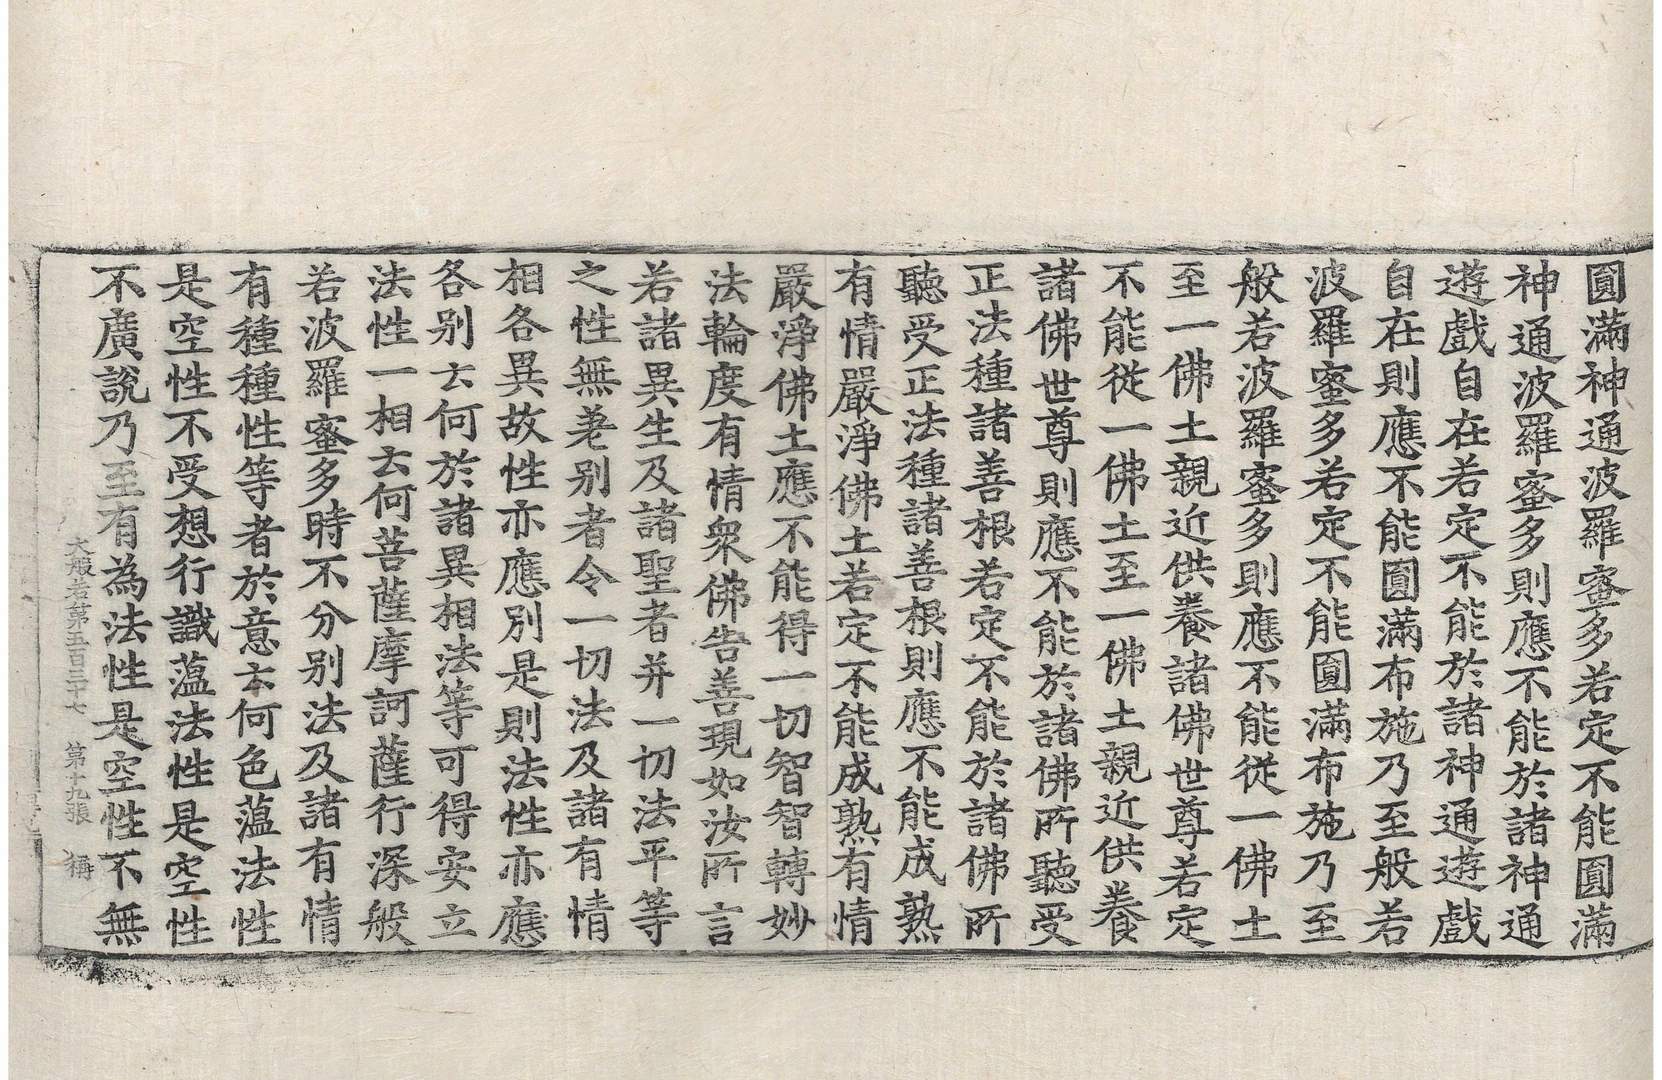 圓滿神通波羅蜜多若定不能圓滿
神通波羅蜜多則應不能於諸神通
遊戲自在若定不能於諸神通遊戲
自在則應不能圓滿布施乃至般若
波羅蜜多若定不能圓滿布施乃至
般若波羅蜜多則應不能從一佛土
至一佛土親近供養諸佛世尊若定
不能從一佛土至一佛土親近供養
諸佛世尊則應不能於諸佛所聽受
正法種諸善根若定不能於諸佛所
聽受正法種諸善根則應不能成熟
有情嚴淨佛土若定不能成熟有情
嚴淨佛土應不能得一切智智轉妙
法輪度有情衆佛告善現如汝所言
若諸異生及諸聖者并一切法平等
之性無差别者令一切法及諸有情
相各異故性亦應別是則法性亦應
各别云何於諸異相法等可得安立
法性一相云何菩薩摩訶薩行深般
若波羅蜜多時不分别法及諸有情
有種種性等者於意云何色薀法性
是空性不受想行識薀法性是空性
不廣說乃至有為法性是空性不無
大般若第五百三十七 第十九張 稱